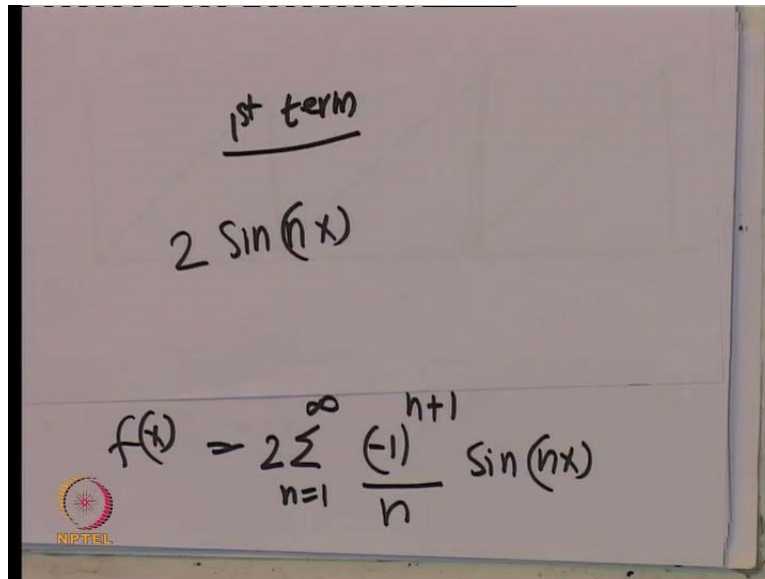 1st term
2 Sin(nx)
f(x) = 2 ∑_{n=1}^{∞} \frac{(-1)^{n+1}}{n} Sin(nx)
NPTEL